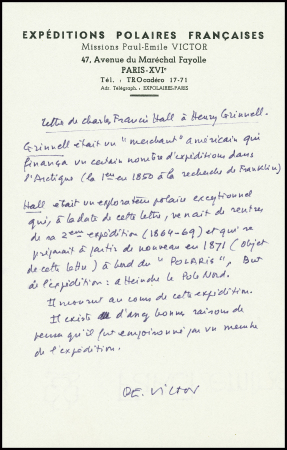 EXPÉDITIONS POLAIRES FRANÇAISES
Missions Paul-Emile VICTOR
47, Avenue du Maréchal Fayolle
PARIS-XVIᵉ
Tél. : TROcadéro 17-71
Adr. Télégraph. : EXPOLAIRES-PARIS
Lettre de Charles Francis Hall à Henry Grinnell.
Grinnell était un "merchant" américain qui
finança un certain nombre d'expéditions dans
l'Arctique (la 1ère en 1850 à la recherche de Franklin)
Hall était un explorateur polaire exceptionnel
qui, à la date de cette lettre, venait de rentrer
de sa 2ème expédition (1864-69) et qui se
préparait à partir de nouveau en 1871 (objet
de cette lettre) à bord du "POLARIS", But
de l'expédition : atteindre le Pôle Nord.
Il mourut au cours de cette expédition.
Il existe d'assez bonnes raisons de
penser qu'il fut empoisonné par un membre
de l'expédition.
P.E. Victor